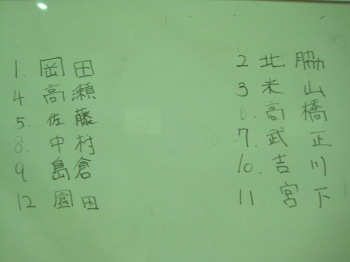 1. 岡田
2 北脇
4 高瀬
3 米山
5. 佐藤
6. 高橋
8. 中村
7. 武正
9 島倉
10. 吉川
12 園田
11. 宮下